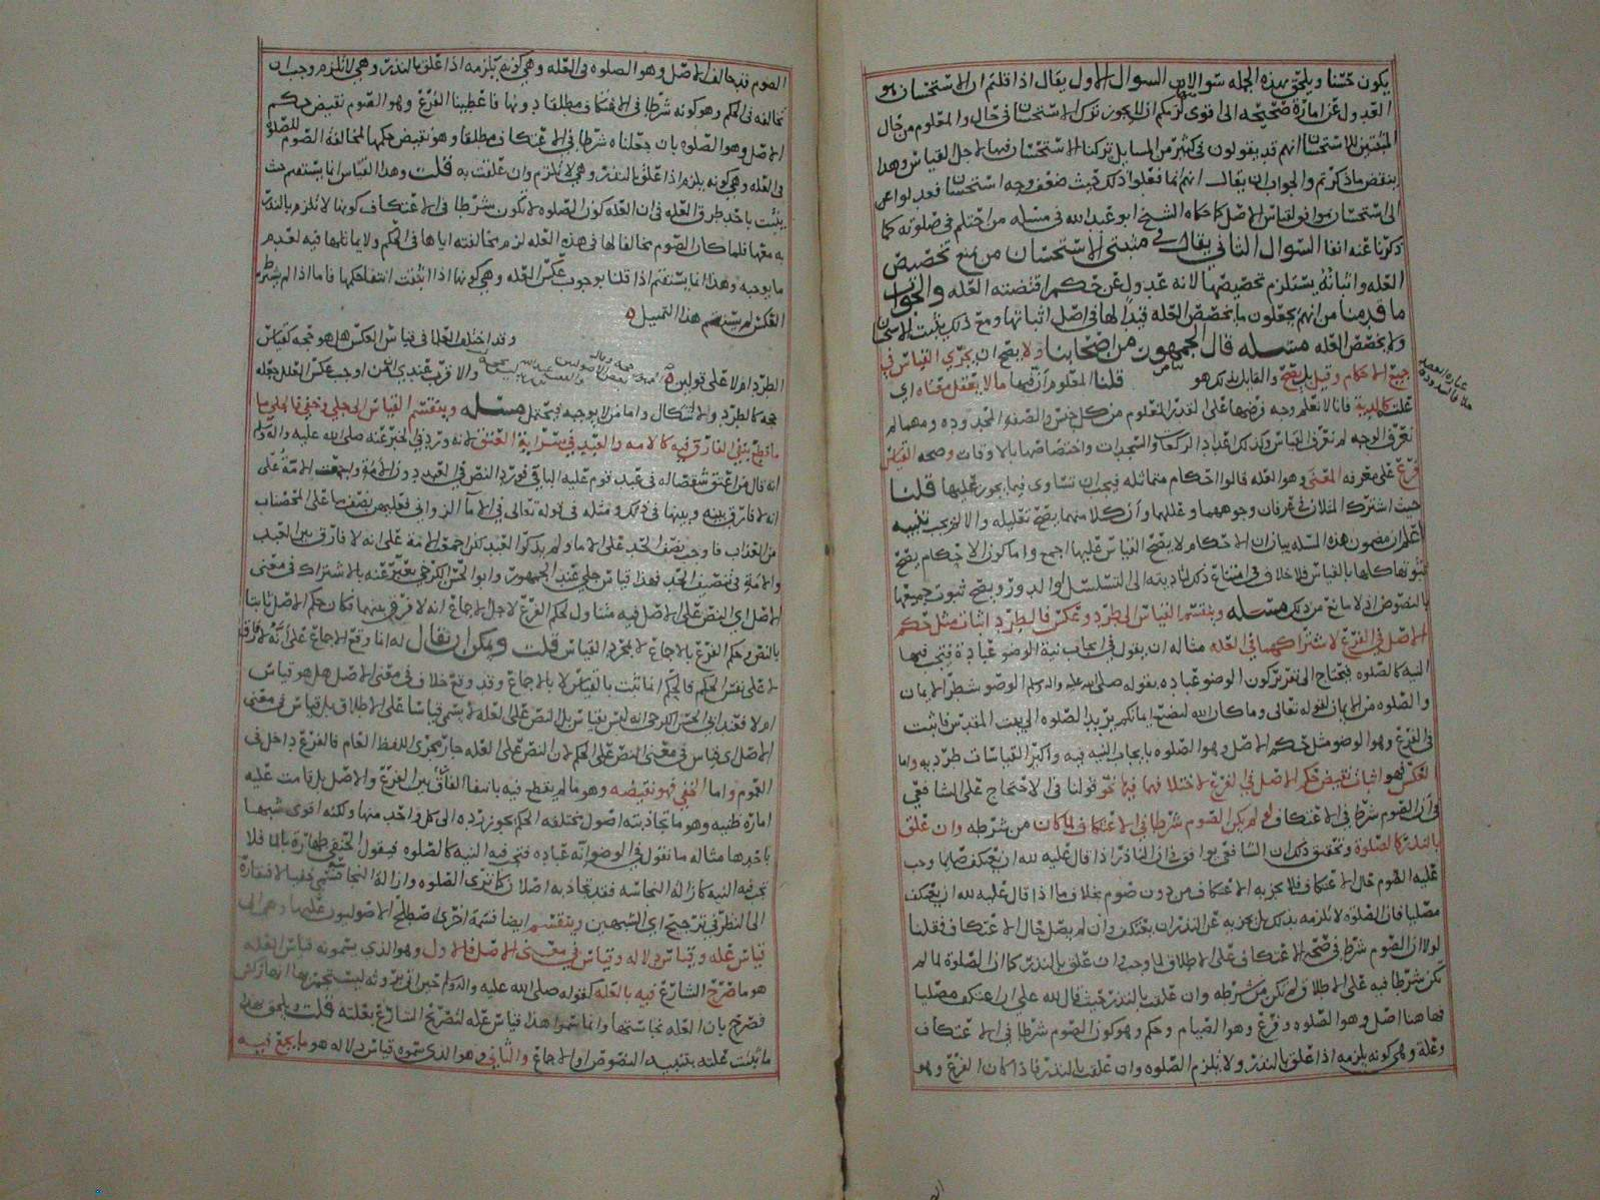 يكون حسنا ويلحق بهذه الجمله سوالان السوال الاول يقال اذا قلتم ان الاستحسان هو
العدول عن امارة صحيحه الى اقوى لزمكم ان لا يجوز ترك الاستحسان في حال والمعلوم من حال
المثبتين للاستحسان انهم قد يقولون في كثير من المسايل تركنا الاستحسان فيها لاجل القياس وهذا
ينقض ما ذكرتم والجواب ان يقال انهم انما فعلوا ذلك حيث ضعف وجه استحسان فعدلوا عن
الى استحسان موافق لقياس الاصل كما حكاه الشيخ ابو عبد الله في مسله من احتلم في صلوته كما
ذكرنا عنه انفا السوال الثاني يقال في مثبتي الاستحسان من يمنع تخصيص
العله واثباته يستلزم تخصيصها لانه عدول عن حكم اقتضته العله والجواب
ما قدمنا من انهم يجعلون ما يخصص العله قيدا لها في اصل اثباتها ومع ذلك يثبت الاستحسان
ولا يخصص العله مسئله قال الجمهور من اصحابنا ولا يصح ان يجري القياس في
جميع الاحكام وقيل بل يصح والقايل بذلك هو قلنا المعلوم ان فيها ما لا يعقل معناه اي
علته كالدية فانا لا نعلم وجه فرضها على القدر المعلوم من كل جنس والصفه المحدوده ومهما لم
نعرف الوجه لم نعرف القياس وكذلك اعداد الركعات والسجدات واختصاصها بالاوقات وصحه القياس
فرع على معرفه المعنى وهو العله قالوا الاحكام متماثله فيجب ان تتساوى فيما يجوز عليها قلنا
حيث اشترك المثلان في عرفان وجوههما وعللهما وان كلا منهما يصح تعليله والا لم يجب تنبيه
اعلم ان مضمون هذه المسله بيان ان الاحكام لا يصح القياس عليها اجمع واما كون الاحكام يصح
ثبوتها كلها بالقياس فلا خلاف في امتناع ذلك لتاديته الى التسلسل او الدور ويصح ثبوت جميعها
بالنصوص اذ لا مانع من ذلك مسئله وينقسم القياس الى طرد وعكس فالطرد اثبات مثل حكم
الاصل في الفرع لاشتراكهما في العله مثاله ان يقول في ايجاب نية الوضو عبادة فتجب فيها
النيه كالصلوه فيحتاج الى تقرير كون الوضو عباده بقوله صلى الله عليه واله وسلم الوضو شطر الايمان
والصلوه من الايمان لقوله تعالى وما كان الله ليضيع ايمانكم يريد الصلوه الى بيت المقدس فاثبت
في الفرع وهو الوضو مثل حكم الاصل وهو الصلوه بايجاب النيه فيه واكثر القياسات طرديه واما
العكس فهو اثبات نقيض حكم الاصل في الفرع لاختلافهما فيها نحو قولنا في الاحتجاج على الشافعي
في ان الصوم شرط في الاعتكاف لو لم يكن الصوم شرطا في الاعتكاف لما كان من شرطه وان علق
بالنذر كالصلوة وتحقيق ذلك ان الشافعي يوافق في ان الناذر اذا قال عليه لله ان يعتكف صايما وجب
عليه الصوم حال الاعتكاف فلا يجزيه الاعتكاف من دون صوم بخلاف ما اذا قال عليه لله ان يعتكف
مصليا فان الصلوة لا تلزمه بذلك بل يجزيه عن النذر ان يعتكف وان لم يصل حال الاعتكاف فقلنا
لولا ان الصوم شرط في صحه الاعتكاف على الاطلاق لما وجب وان علق بالنذر كما ان الصلوة لما لم
تكن شرطا فيه على الاطلاق لم تكن من شرطه وان علقت بالنذر حيث قال لله علي ان اعتكف مصليا
فهاهنا اصل وهو الصلوه وفرع وهو الصيام وحكم وهو كون الصوم شرطا في الاعتكاف
وعلة وهي كونه يلزمه اذا علق بالنذر ولا يلزم الصلوه وان علقت بالنذر فاذا كان الفرع وهو
الصوم قد خالف الاصل وهو الصلوه في العله وهي كونه يلزمه اذا علق بالنذر وهي لا تلزم وجب ان
تخالفه في الحكم وهو كونه شرطا في الاعتكاف مطلقا دونها فاعطينا الفرع وهو الصوم نقيض حكم
الاصل وهو الصلوه بان جعلناه شرطا في الاعتكاف مطلقا وهو نقيض حكمها لمخالفة الصوم للصلوة
في العله وهي كونه يلزم اذا علق بالنذر وهي لا تلزم وان علقت به قلت وهذا القياس انما يستقيم حيث
يثبت باحد طرق العله في ان العله كون الصلوه لا تكون شرطا في الاعتكاف كونها لا تلزم بالنذر
به معها فلما كان الصوم مخالفا لها في هذه العله لزم مخالفته اياها في الحكم ولا يماثلها فيه لعدم
ما يوجبه وهذا انما يستقيم اذا قلنا بوجوب عكس العله وهي كونها اذا انتفت انتفا حكمها فاما اذا لم يشترط
العكس لم يستقم هذا التمثيل
وقد اختلف العلما في قياس العكس هل هو حجه كقياس
الطرد ام لا على قولين والاقرب عندي ان من اوجب عكس العلل جعله
حجه كالطرد ولا اشكال واما من لا يوجبه فيحتمل مسئله وينقسم القياس الى جلي وخفي فالجلي ما
ما قطع بنفي الفارق فيه كالامه والعبد في سراية العتق لانه ورد في الخبر عنه صلى الله عليه واله وسلم
انه قال من اعتق شقصا له في عبد قوم عليه الباقي فورد النص في العبد دون الامة واجمعت الامة على
انه لا فارق بينه وبينها في ذلك ومثله في قوله تعالى في الاما الزواني فعليهن نصف ما على المحصنات
من العذاب فاوجب نصف الحد على الاما ولم يذكر العبد لكن اجمعت الامة على انه لا فارق بين العبد
والامة في تنصيف الحد فهذا قياس جلي عند الجمهور وابو الحسن الكرخي يعبر عنه بالاشتراك في معنى
الاصل اي النص على الاصل فيه متناول لحكم الفرع لاجل الاجماع انه لا فرق بينهما فكان حكم الاصل ثابتا
بالنص وحكم الفرع بالاجماع لا بمجرد القياس قلت ويمكن ان يقال له انما وقع الاجماع على انه لا فارق
لا على نفس الحكم فالحكم انما ثبت بالقياس لا بالاجماع وقد وقع خلاف في معنى الاصل هل هو قياس
ام لا فعند ابي الحسن الكرخي انه ليس بقياس بل النص على العله لا يسمى قياسا على الاطلاق بل قياس في معنى
الاصل اي قياس في معنى النص على الحكم لان النص على العله جار مجرى اللفظ العام فالفرع داخل في
العموم واما الخفي فهو نقيضه وهو ما لم يقطع فيه بانتفا الفارق بين الفرع والاصل بل قامت عليه
امارة ظنيه وهو ما تجاذبته اصول مختلفه الحكم يجوز رده الى كل واحد منها ولكنه اقوى شبها
باحدها مثاله ما نقول في الوضو انه عباده فتجب فيه النيه كالصلوه فيقول الحنفي طهارة بالما فلا
تجب فيه النيه كازاله النجاسه فقد تجاذبه اصلان كما ترى الصلوه وازاله النجاسه فسمي خفيا لافتقاره
الى النظر في ترجيح اي الشبهين وينقسم ايضا قسمة اخرى اصطلح الاصوليون عليها وهي الى
قياس عله وقياس دلاله وقياس في معنى الاصل فالاول وهو الذي يسمونه قياس العله
هو ما صرح الشارع فيه بالعله كقوله صلى الله عليه واله وسلم
فصرح بان العله نجاستها وانما سموا هذا قياس عله لتصريح الشارع بعلته قلت ويلحق بهذا
ما ثبتت علته بتنبيه النصوص او الاجماع والثاني وهو الذي سموه قياس دلاله هو ما يجمع فيه